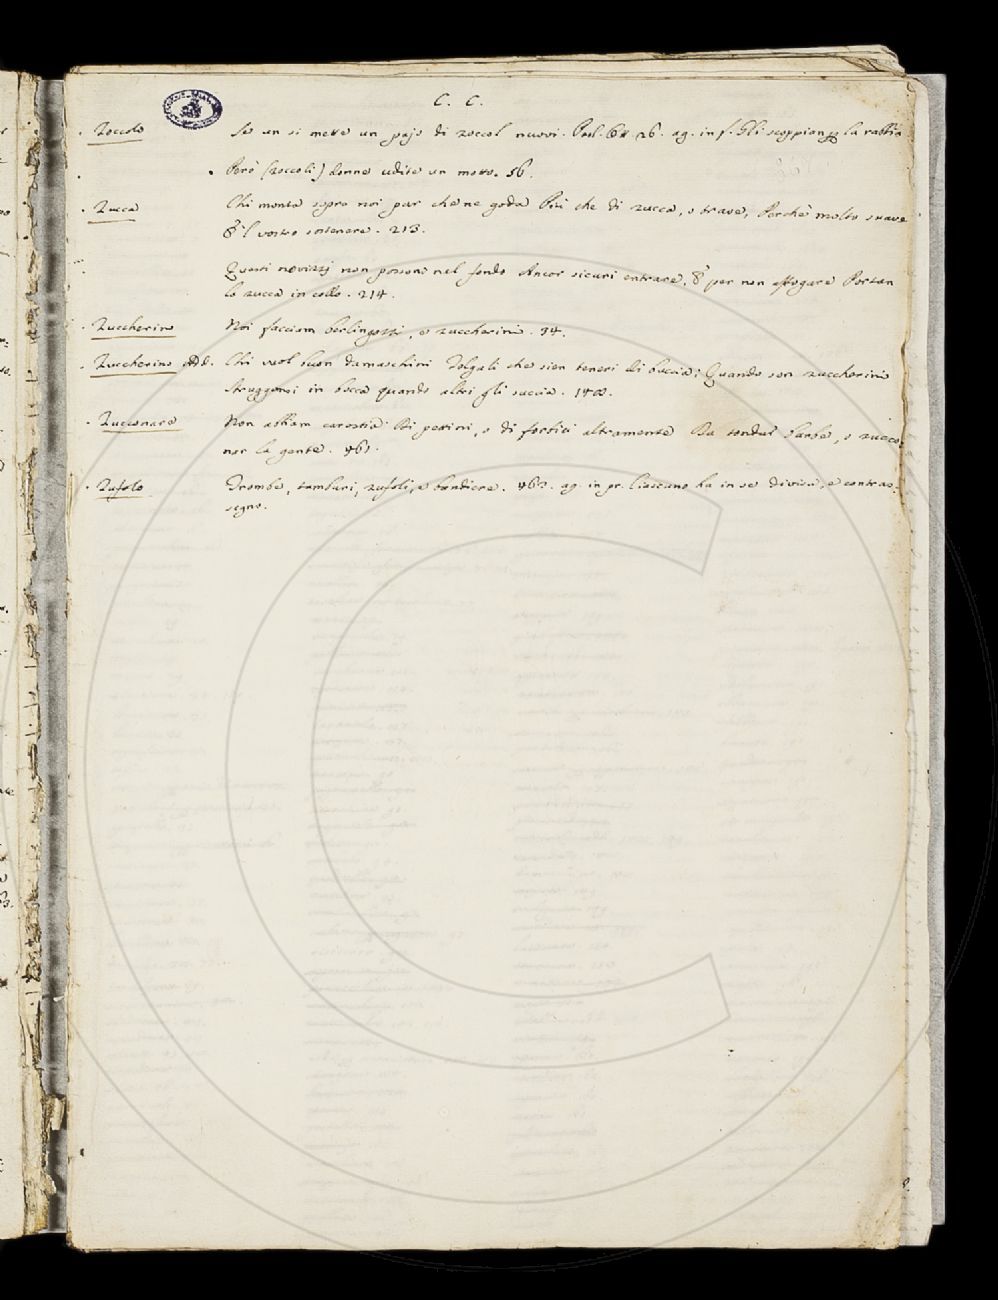 C. C.
Zoccolo Se un si mette un pajo di zoccol nuovi. 26. ag. in f. Gli scoppian la rabbia
Però (zoccoli) donne udite un motto. 56.
Zucca Chi monta sopra noi par che ne goda Più che di zucca, o trave, Perchè molto suave
È 'l vostro sostenere. 213.
Questi novizzj non posson nel fondo Ancor sicuri entrare, E per non affogare Portan
la zucca in collo. 214.
Zuccherino Noi facciam berlingozzi, e zuccherini. 34.
Zuccherino Add. Chi vuol buon damaschini Tolgali che sien teneri di buccia; Quando son zuccherini
Struggonsi in bocca quando altri gli succia. 148.
Zucconare Non abbiam carestia Di pettini, e di forbici altramente Da tondar barbe, e zucco-
nar la gente. 461.
Zufolo Trombe, tamburi, zufoli, e bandiere. 462. ag. in pr. Ciascuno ha in se divisa, e contras-
segno.